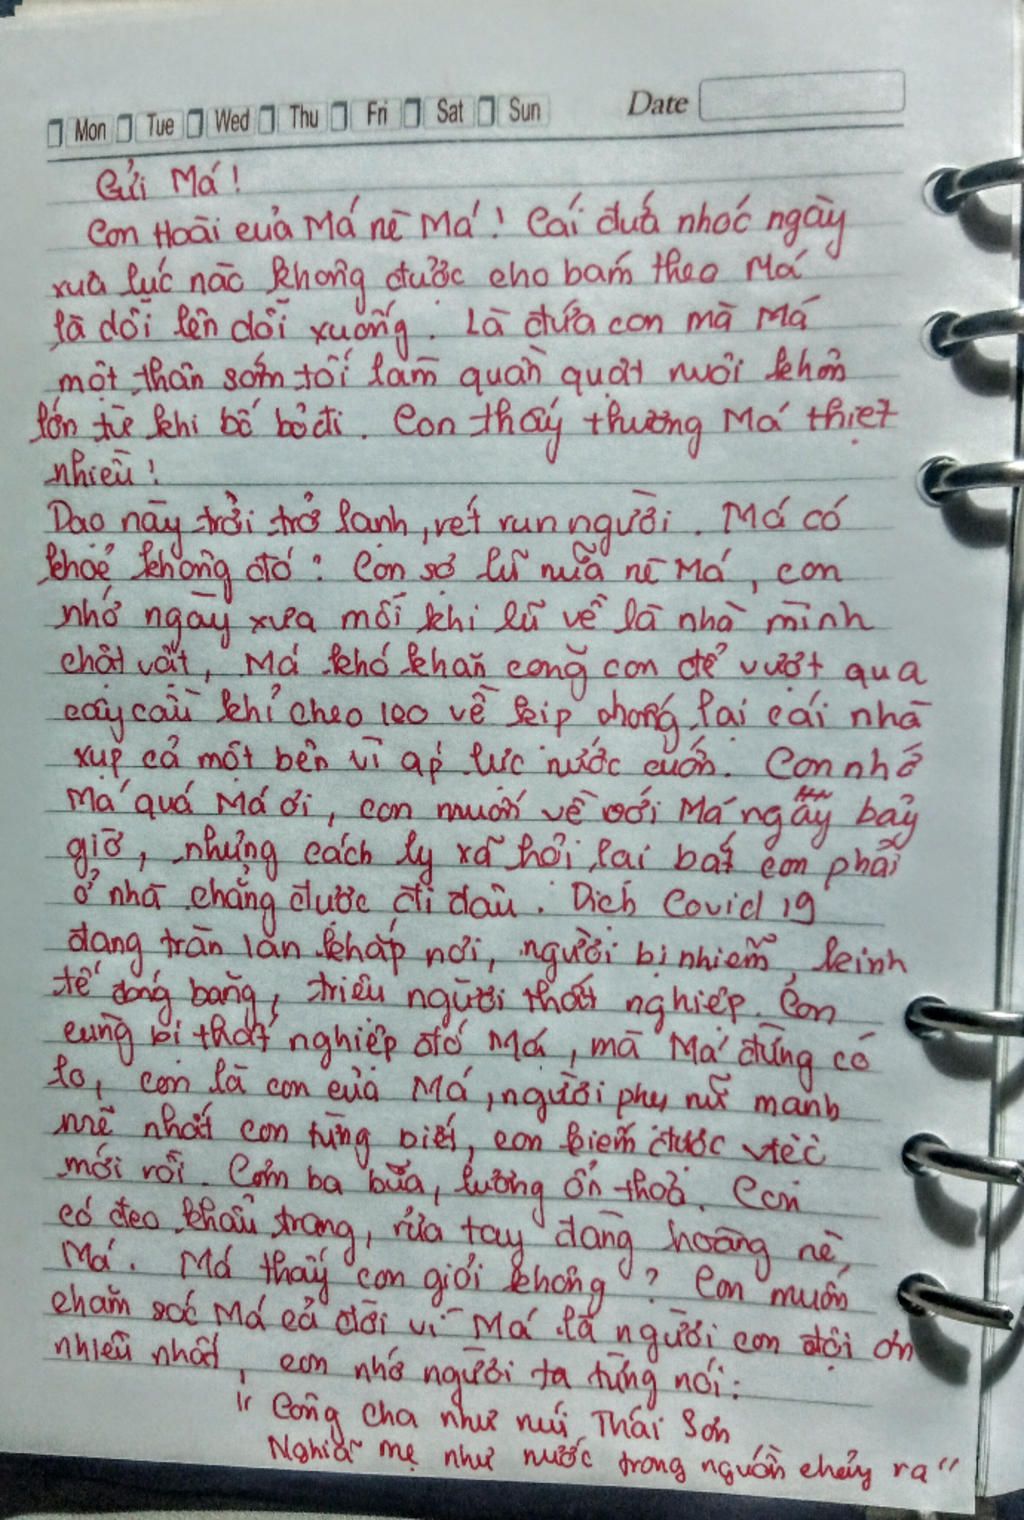 Mon Tue Wed Thu Fri Sat Sun Date
Gửi Má!
Con Hoài của Má nè Má! Cái đứa nhóc ngày
xưa lúc nào không được cho bám theo Má
là dỗi lên dỗi xuống. Là đứa con mà Má
một thân sớm tối làm quần quật nuôi khôn
lớn từ khi bố bỏ đi. Con thấy thương Má thiệt
nhiều!
Dạo này trời trở lạnh, rét run người. Má có
khoẻ không đó? Con sợ lũ nữa nè Má, con
nhớ ngày xưa mỗi khi lũ về là nhà mình
chật vật, Má khó khăn cõng con để vượt qua
cây cầu khỉ cheo leo về kịp chống lại cái nhà
xụp cả một bên vì áp lực nước cuốn. Con nhớ
Má quá Má ơi, con muốn về với Má ngay bây
giờ, nhưng cách ly xã hội lại bắt con phải
ở nhà chẳng được đi đâu. Dịch Covid 19
đang tràn lan khắp nơi, người bị nhiễm, kinh
tế đóng băng, triệu người thất nghiệp. Con
cũng bị thất nghiệp đó Má, mà Má đừng có
lo, con là con của Má, người phụ nữ mạnh
mẽ nhất con từng biết, con kiếm được việc
mới rồi. Cơm ba bữa, lương ổn thoả. Con
có đeo khẩu trang, rửa tay đàng hoàng nè,
Má. Má thấy con giỏi không? Con muốn
chăm sóc Má cả đời vì Má là người con đội ơn
nhiều nhất, con nhớ người ta từng nói:
"Công cha như núi Thái Sơn
Nghĩa mẹ như nước trong nguồn chảy ra"